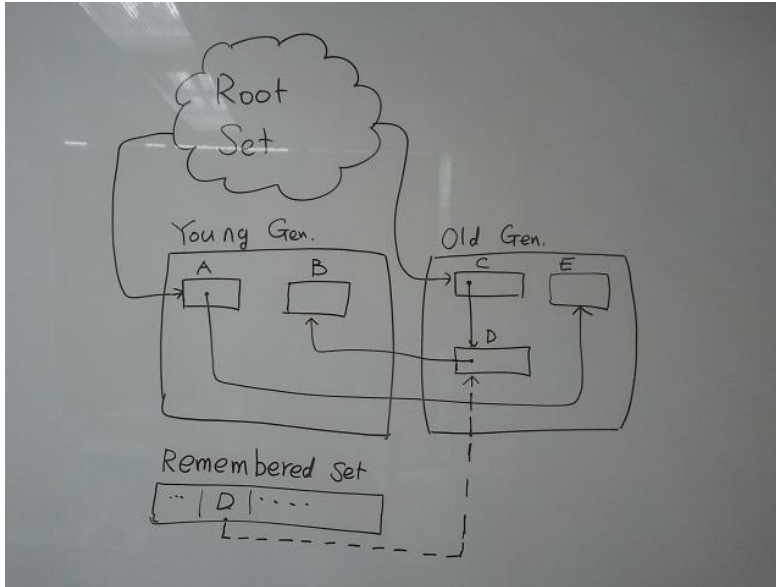 Root
Set
Young Gen.
Old Gen.
A
B
C
E
D
Remembered Set
... | D | ....